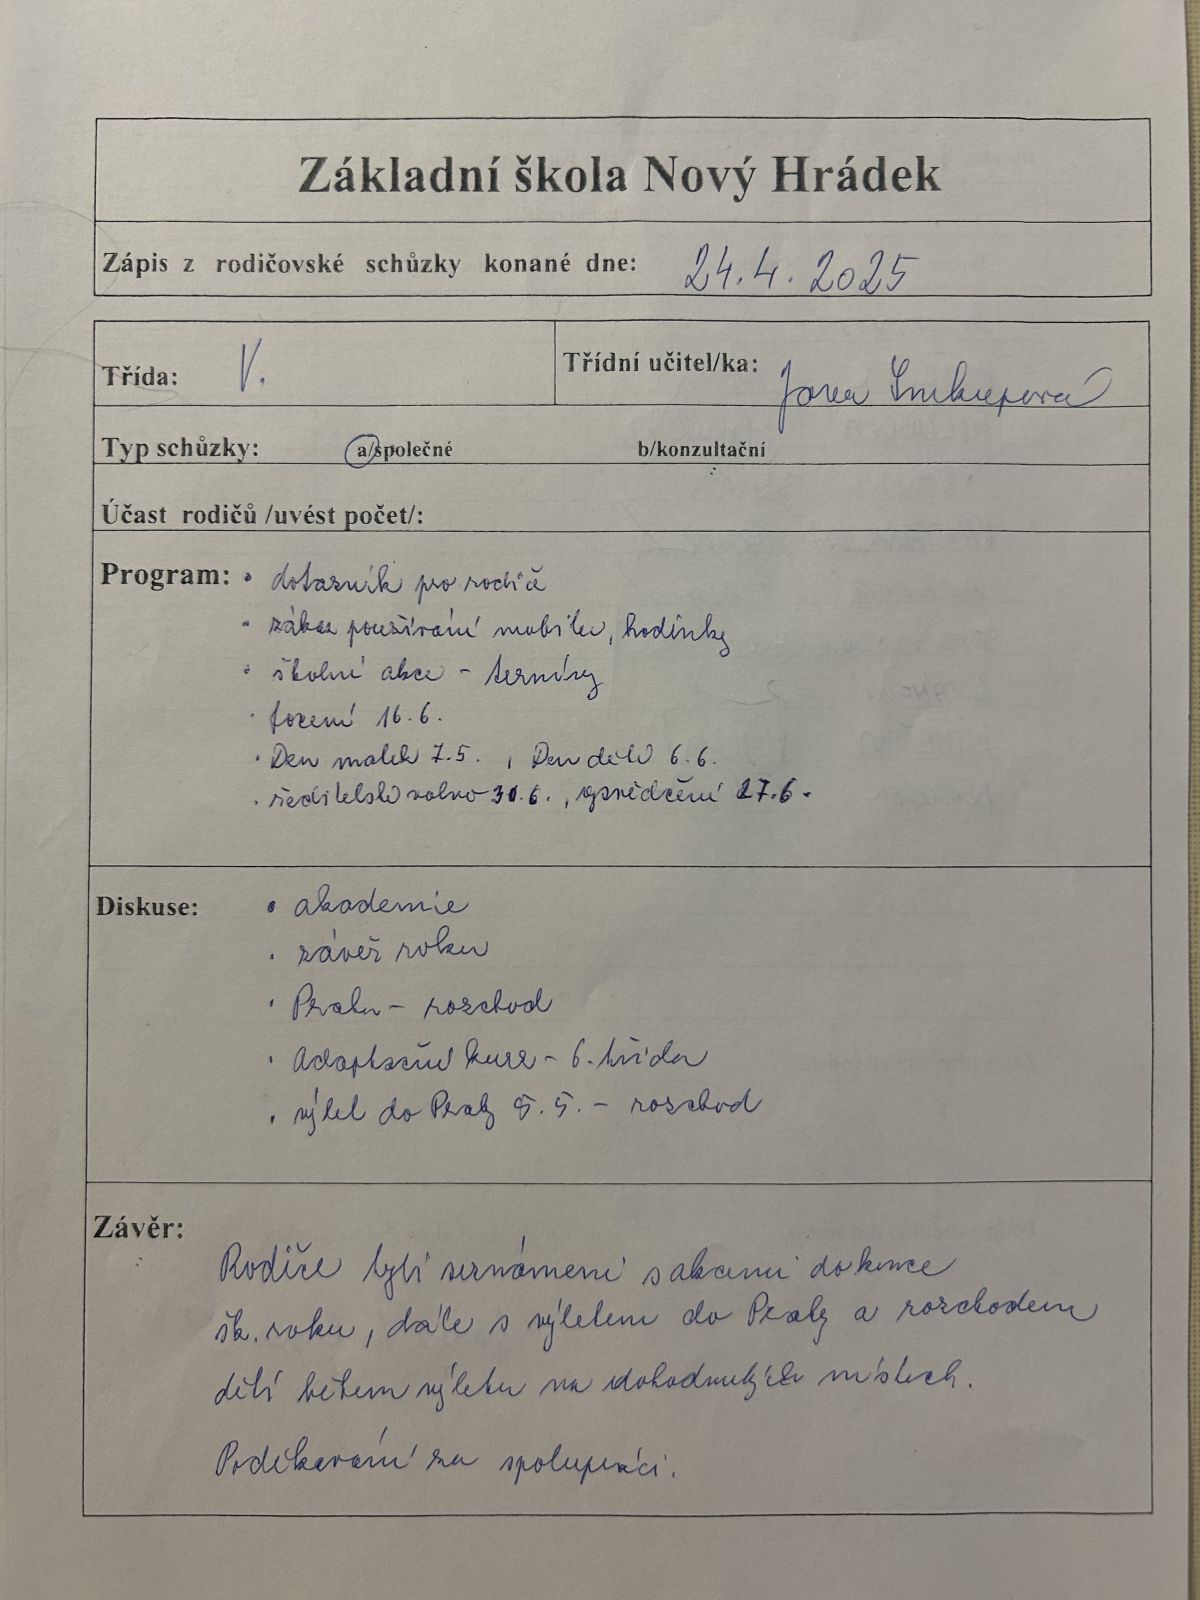 Základní škola Nový Hrádek
Zápis z rodičovské schůzky konané dne: 24.4.2025
Třída: V.
Třídní učitel/ka: Jana Soukupová
Typ schůzky: a/společné b/konzultační
Účast rodičů /uvést počet/:
Program: • dotazník pro rodiče
• zákaz používání mobilu, hodinky
• školní akce - termíny
• focení 16.6.
• Den matek 7.5., Den dětí 6.6.
• ředitelské volno 30.6., vysvědčení 27.6.
Diskuse: • akademie
• závěr roku
• Praha - rozchod
• Adaptační kurz - 6. třída
• výlet do Prahy 5.5. - rozchod
Závěr:
Rodiče byli seznámeni s akcemi do konce
šk. roku, dále s výletem do Prahy a rozchodem
dětí během výletu na dohodnutých místech.
Poděkování za spolupráci.